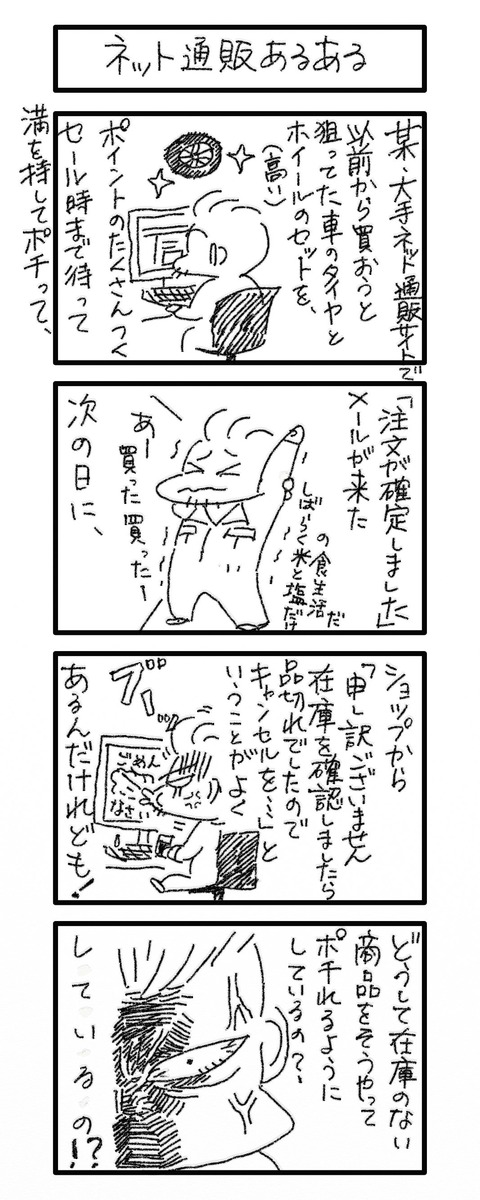 ネット通販あるある
某・大手ネット通販サイトで
以前から買おうと
狙ってた車のタイヤと
ホイールのセットを、
(高い)
ポイントのたくさんつく
セール時まで待って
満を持してポチって、
「注文が確定しました」
メールが来た
しばらく米と塩だけ
の食生活だ
あー
買った買ったー
次の日に、
ショップから
「申し訳ございません
在庫を確認しましたら
品切れでしたので
キャンセルを…」と
いうことがよく
ブーッ
ごめん
なさい
あるんだけれども!
どうして在庫のない
商品をそうやって
ポチれるように
しているの?、
しているの!?